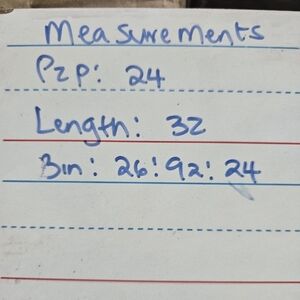 Measurements
P2P: 24
Length: 32
Bin: 26:92:24